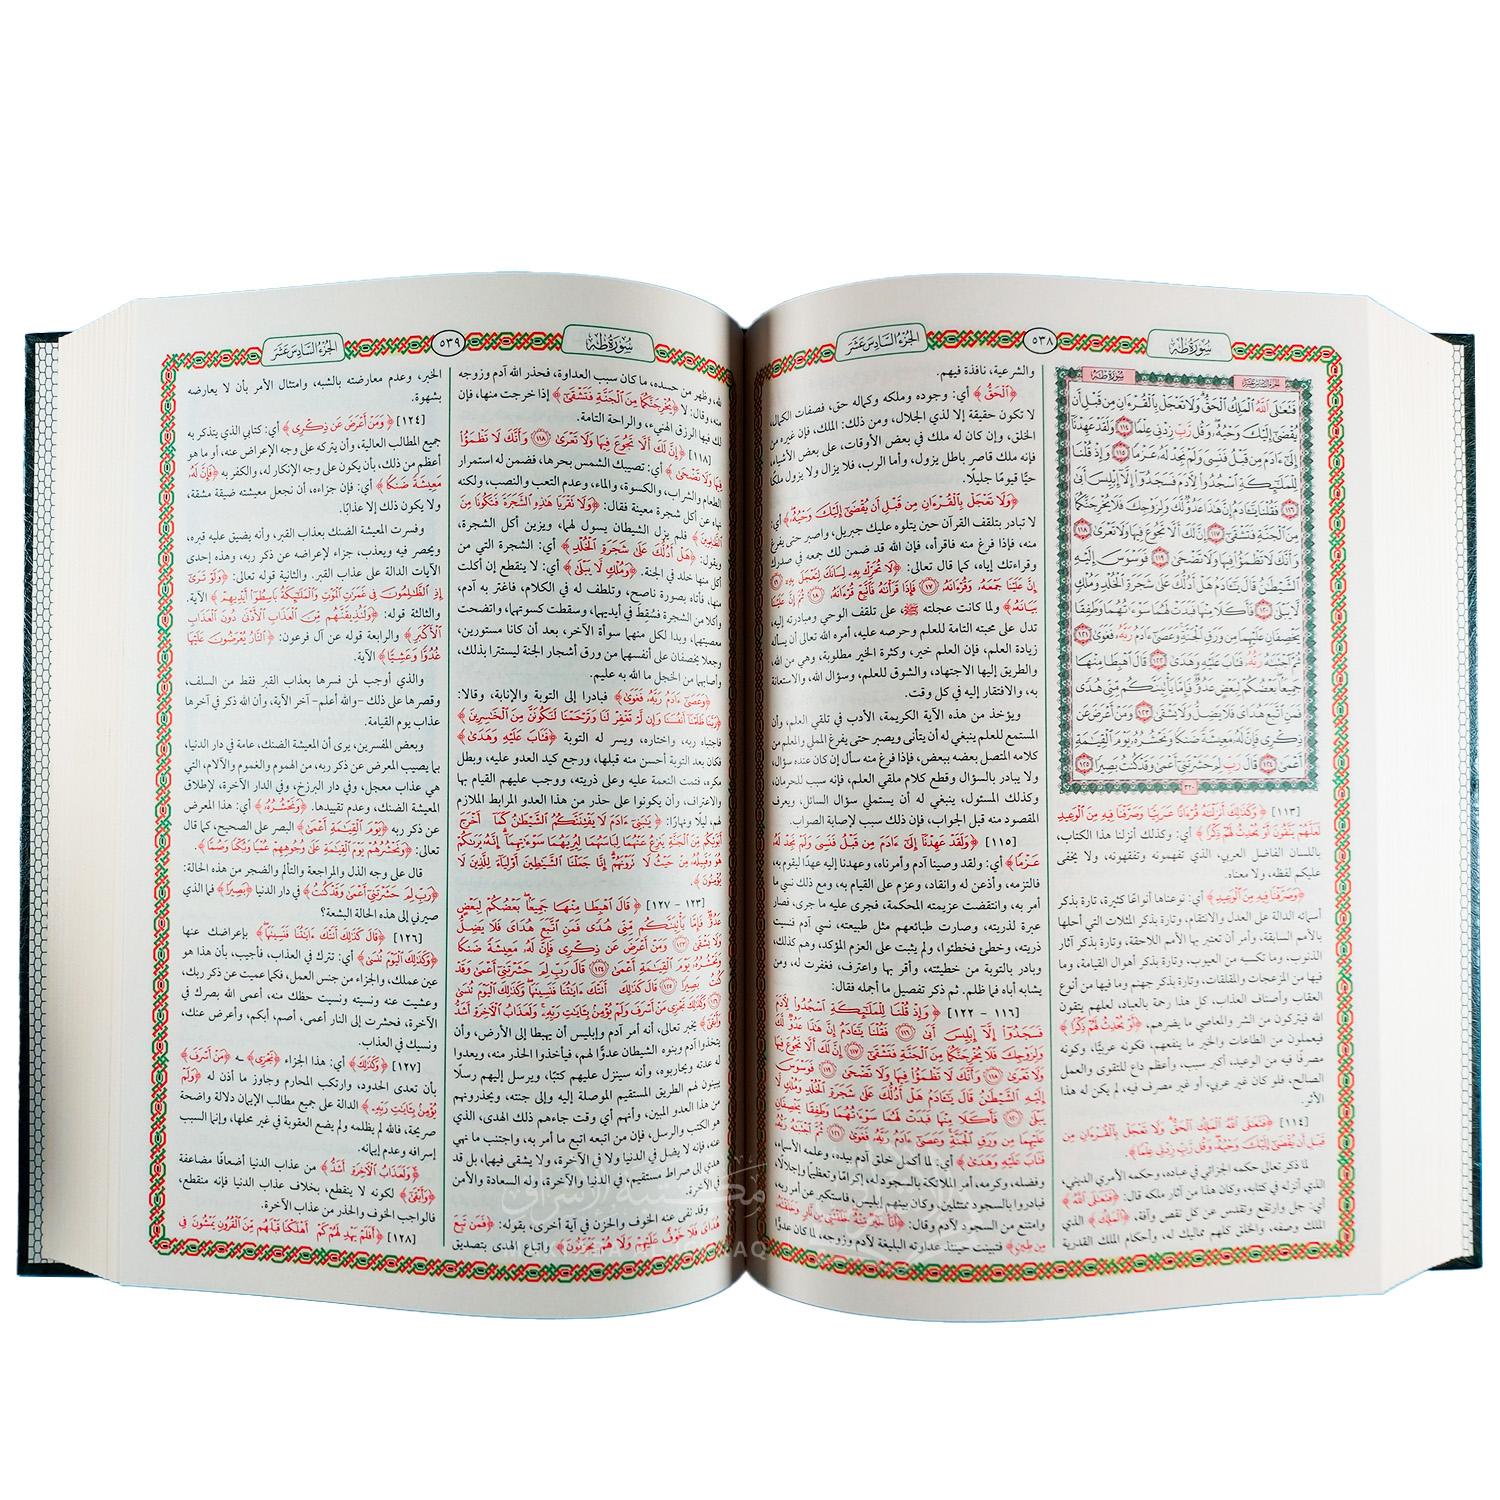 سُورَةُ طه
٥٣٨
الجُزءُ السَّادِس عَشَر
سُورَةُ طه
فَتَعَٰلَى ٱللَّهُ ٱلْمَلِكُ ٱلْحَقُّ وَلَا تَعْجَلْ بِٱلْقُرْءَانِ مِن قَبْلِ أَن
يُقْضَىٰٓ إِلَيْكَ وَحْيُهُۥ وَقُل رَّبِّ زِدْنِى عِلْمًا ١١٤ وَلَقَدْ عَهِدْنَآ
إِلَىٰٓ ءَادَمَ مِن قَبْلُ فَنَسِىَ وَلَمْ نَجِدْ لَهُۥ عَزْمًا ١١٥ وَإِذْ قُلْنَا
لِلْمَلَٰٓئِكَةِ ٱسْجُدُوا۟ لِءَادَمَ فَسَجَدُوٓا۟ إِلَّآ إِبْلِيسَ أَبَىٰ
١١٦ فَقُلْنَا يَٰٓـَٔادَمُ إِنَّ هَٰذَا عَدُوٌّ لَّكَ وَلِزَوْجِكَ فَلَا يُخْرِجَنَّكُمَا
مِنَ ٱلْجَنَّةِ فَتَشْقَىٰٓ ١١٧ إِنَّ لَكَ أَلَّا تَجُوعَ فِيهَا وَلَا تَعْرَىٰ ١١٨
وَأَنَّكَ لَا تَظْمَؤُا۟ فِيهَا وَلَا تَضْحَىٰ ١١٩ فَوَسْوَسَ إِلَيْهِ
ٱلشَّيْطَٰنُ قَالَ يَٰٓـَٔادَمُ هَلْ أَدُلُّكَ عَلَىٰ شَجَرَةِ ٱلْخُلْدِ وَمُلْكٍ
لَّا يَبْلَىٰ ١٢٠ فَأَكَلَا مِنْهَا فَبَدَتْ لَهُمَا سَوْءَٰتُهُمَا وَطَفِقَا
يَخْصِفَانِ عَلَيْهِمَا مِن وَرَقِ ٱلْجَنَّةِ وَعَصَىٰٓ ءَادَمُ رَبَّهُۥ فَغَوَىٰ ١٢١
ثُمَّ ٱجْتَبَٰهُ رَبُّهُۥ فَتَابَ عَلَيْهِ وَهَدَىٰ ١٢٢ قَالَ ٱهْبِطَا مِنْهَا
جَمِيعًۢا بَعْضُكُمْ لِبَعْضٍ عَدُوٌّ فَإِمَّا يَأْتِيَنَّكُم مِّنِّى هُدًى
فَمَنِ ٱتَّبَعَ هُدَاىَ فَلَا يَضِلُّ وَلَا يَشْقَىٰ ١٢٣ وَمَنْ أَعْرَضَ عَن
ذِكْرِى فَإِنَّ لَهُۥ مَعِيشَةً ضَنكًا وَنَحْشُرُهُۥ يَوْمَ ٱلْقِيَٰمَةِ
أَعْمَىٰ ١٢٤ قَالَ رَبِّ لِمَ حَشَرْتَنِىٓ أَعْمَىٰ وَقَدْ كُنتُ بَصِيرًا ١٢٥
٣٢٠
[١١٣] ﴿وَكَذَٰلِكَ أَنزَلْنَٰهُ قُرْءَانًا عَرَبِيًّا وَصَرَّفْنَا فِيهِ مِنَ ٱلْوَعِيدِ
لَعَلَّهُمْ يَتَّقُونَ أَوْ يُحْدِثُ لَهُمْ ذِكْرًا﴾ أي: وكذلك أنزلنا هذا الكتاب،
باللسان الفاضل العربي، الذي تفهمونه وتفقهونه، ولا يخفى
عليكم لفظه، ولا معناه.
﴿وَصَرَّفْنَا فِيهِ مِنَ ٱلْوَعِيدِ﴾ أي: نوعناها أنواعًا كثيرة، تارة بذكر
أسمائه الدالة على العدل والانتقام، وتارة بذكر المثلات التي أحلها
بالأمم السابقة، وأمر أن تعتبر بها الأمم اللاحقة، وتارة بذكر آثار
الذنوب، وما تكسبه من العيوب، وتارة بذكر أهوال القيامة، وما
فيها من المزعجات والمقلقات، وتارة بذكر جهنم وما فيها من أنواع
العقاب وأصناف العذاب، كل هذا رحمة بالعباد، لعلهم يتقون
الله فيتركون من الشر والمعاصي ما يضرهم، ﴿أَوْ يُحْدِثُ لَهُمْ ذِكْرًا﴾
فيعملون من الطاعات والخير ما ينفعهم، فكونه عربيًّا، وكونه
مصرفًا فيه من الوعيد، أكبر سبب، وأعظم داع للتقوى والعمل
الصالح، فلو كان غير عربي، أو غير مصرف فيه، لم يكن له هذا
الأثر.
[١١٤] ﴿فَتَعَٰلَى ٱللَّهُ ٱلْمَلِكُ ٱلْحَقُّ وَلَا تَعْجَلْ بِٱلْقُرْءَانِ مِن
قَبْلِ أَن يُقْضَىٰٓ إِلَيْكَ وَحْيُهُۥ وَقُل رَّبِّ زِدْنِى عِلْمًا﴾.
لما ذكر تعالى حكمه الجزائي في عباده، وحكمه الأمري الديني،
الذي أنزله في كتابه، وكان هذا من آثار ملكه قال: ﴿فَتَعَٰلَى ٱللَّهُ﴾
أي: جل وارتفع وتقدس عن كل نقص وآفة، ﴿ٱلْمَلِكُ﴾ الذي
الملك وصفه، والخلق كلهم مماليك له، وأحكام الملك القدرية
والشرعية، نافذة فيهم.
﴿ٱلْحَقُّ﴾ أي: وجوده وملكه وكماله حق، فصفات الكمال،
لا تكون حقيقة إلا لذي الجلال، ومن ذلك: الملك، فإن غيره من
الخلق، وإن كان له ملك في بعض الأوقات، على بعض الأشياء،
فإنه ملك قاصر باطل يزول، وأما الرب، فلا يزال ولا يزول ملكًا
حيًّا قيومًا جليلًا.
﴿وَلَا تَعْجَلْ بِٱلْقُرْءَانِ مِن قَبْلِ أَن يُقْضَىٰٓ إِلَيْكَ وَحْيُهُۥ﴾ أي:
لا تبادر بتلقف القرآن حين يتلوه عليك جبريل، واصبر حتى يفرغ
منه، فإذا فرغ منه فاقرأه، فإن الله قد ضمن لك جمعه في صدرك
وقراءتك إياه، كما قال تعالى: ﴿لَا تُحَرِّكْ بِهِۦ لِسَانَكَ لِتَعْجَلَ بِهِۦٓ ١٦
إِنَّ عَلَيْنَا جَمْعَهُۥ وَقُرْءَانَهُۥ ١٧ فَإِذَا قَرَأْنَٰهُ فَٱتَّبِعْ قُرْءَانَهُۥ ١٨ ثُمَّ إِنَّ عَلَيْنَا
بَيَانَهُۥ﴾ ولما كانت عجلته ﷺ، على تلقف الوحي ومبادرته إليه،
تدل على محبته التامة للعلم وحرصه عليه، أمره الله تعالى أن يسأله
زيادة العلم، فإن العلم خير، وكثرة الخير مطلوبة، وهي من الله،
والطريق إليها الاجتهاد، والشوق للعلم، وسؤال الله، والاستعانة
به، والافتقار إليه في كل وقت.
ويؤخذ من هذه الآية الكريمة، الأدب في تلقي العلم، وأن
المستمع للعلم ينبغي له أن يتأنى ويصبر حتى يفرغ المملي والمعلم من
كلامه المتصل بعضه ببعض، فإذا فرغ منه سأل إن كان عنده سؤال،
ولا يبادر بالسؤال وقطع كلام ملقي العلم، فإنه سبب للحرمان،
وكذلك المسئول، ينبغي له أن يستملي سؤال السائل، ويعرف
المقصود منه قبل الجواب، فإن ذلك سبب لإصابة الصواب.
[١١٥] ﴿وَلَقَدْ عَهِدْنَآ إِلَىٰٓ ءَادَمَ مِن قَبْلُ فَنَسِىَ وَلَمْ نَجِدْ لَهُۥ
عَزْمًا﴾ أي: ولقد وصينا آدم وأمرناه، وعهدنا إليه عهدًا ليقوم به،
فالتزمه، وأذعن له وانقاد، وعزم على القيام به، ومع ذلك نسي ما
أمر به، وانتقضت عزيمته المحكمة، فجرى عليه ما جرى، فصار
عبرة لذريته، وصارت طبائعهم مثل طبيعته، نسي آدم فنسيت
ذريته، وخطئ فخطئوا، ولم يثبت على العزم المؤكد، وهم كذلك،
وبادر بالتوبة من خطيئته، وأقر بها واعترف، فغفرت له، ومن
يشابه أباه فما ظلم. ثم ذكر تفصيل ما أجمله فقال:
[١١٦ - ١٢٢] ﴿وَإِذْ قُلْنَا لِلْمَلَٰٓئِكَةِ ٱسْجُدُوا۟ لِءَادَمَ
فَسَجَدُوٓا۟ إِلَّآ إِبْلِيسَ أَبَىٰ ١١٦ فَقُلْنَا يَٰٓـَٔادَمُ إِنَّ هَٰذَا عَدُوٌّ لَّكَ
وَلِزَوْجِكَ فَلَا يُخْرِجَنَّكُمَا مِنَ ٱلْجَنَّةِ فَتَشْقَىٰٓ ١١٧ إِنَّ لَكَ أَلَّا تَجُوعَ فِيهَا
وَلَا تَعْرَىٰ ١١٨ وَأَنَّكَ لَا تَظْمَؤُا۟ فِيهَا وَلَا تَضْحَىٰ ١١٩ فَوَسْوَسَ
إِلَيْهِ ٱلشَّيْطَٰنُ قَالَ يَٰٓـَٔادَمُ هَلْ أَدُلُّكَ عَلَىٰ شَجَرَةِ ٱلْخُلْدِ وَمُلْكٍ لَّا
يَبْلَىٰ ١٢٠ فَأَكَلَا مِنْهَا فَبَدَتْ لَهُمَا سَوْءَٰتُهُمَا وَطَفِقَا يَخْصِفَانِ
عَلَيْهِمَا مِن وَرَقِ ٱلْجَنَّةِ وَعَصَىٰٓ ءَادَمُ رَبَّهُۥ فَغَوَىٰ ١٢١ ثُمَّ ٱجْتَبَٰهُ رَبُّهُۥ
فَتَابَ عَلَيْهِ وَهَدَىٰ﴾ أي: لما أكمل خلق آدم بيده، وعلمه الأسماء،
وفضله، وكرمه، أمر الملائكة بالسجود له، إكرامًا وتعظيمًا وإجلالًا،
فبادروا بالسجود ممتثلين، وكان بينهم إبليس، فاستكبر عن أمر ربه،
وامتنع من السجود لآدم وقال: ﴿أَنَا۠ خَيْرٌ مِّنْهُ خَلَقْتَنِى مِن نَّارٍ وَخَلَقْتَهُۥ
مِن طِينٍ﴾ فتبينت حينئذ، عداوته البليغة لآدم وزوجه، لما كان عدوًّا
سُورَةُ طه
٥٣٩
الجُزءُ السَّادِس عَشَر
لله، وظهر من حسده، ما كان سبب العداوة، فحذر الله آدم وزوجه
منه، وقال: لا ﴿يُخْرِجَنَّكُمَا مِنَ ٱلْجَنَّةِ فَتَشْقَىٰٓ﴾ إذا خرجت منها، فإن
لك فيها الرزق الهنيء، والراحة التامة.
[١١٨] ﴿إِنَّ لَكَ أَلَّا تَجُوعَ فِيهَا وَلَا تَعْرَىٰ ١١٨ وَأَنَّكَ لَا تَظْمَؤُا۟
فِيهَا وَلَا تَضْحَىٰ﴾ أي: تصيبك الشمس بحرها، فضمن له استمرار
الطعام والشراب، والكسوة، والماء، وعدم التعب والنصب، ولكنه
نهاه عن أكل شجرة معينة فقال: ﴿وَلَا تَقْرَبَا هَٰذِهِ ٱلشَّجَرَةَ فَتَكُونَا مِنَ
ٱلظَّٰلِمِينَ﴾ فلم يزل الشيطان يسول لهما، ويزين أكل الشجرة،
ويقول: ﴿هَلْ أَدُلُّكَ عَلَىٰ شَجَرَةِ ٱلْخُلْدِ﴾ أي: الشجرة التي من
أكل منها خلد في الجنة. ﴿وَمُلْكٍ لَّا يَبْلَىٰ﴾ أي: لا ينقطع إن أكلت
منها، فأتاه بصورة ناصح، وتلطف له في الكلام، فاغتر به آدم،
وأكلا من الشجرة فسُقِطَ في أيديهما، وسقطت كسوتهما، واتضحت
معصيتهما، وبدا لكل منهما سوأة الآخر، بعد أن كانا مستورين،
وجعلا يخصفان على أنفسهما من ورق أشجار الجنة ليستترا بذلك،
وأصابهما من الخجل ما الله به عليم.
﴿وَعَصَىٰٓ ءَادَمُ رَبَّهُۥ فَغَوَىٰ﴾ فبادرا إلى التوبة والإنابة، وقالا:
﴿رَبَّنَا ظَلَمْنَآ أَنفُسَنَا وَإِن لَّمْ تَغْفِرْ لَنَا وَتَرْحَمْنَا لَنَكُونَنَّ مِنَ ٱلْخَٰسِرِينَ﴾
فاجتباه ربه، واختاره، ويسر له التوبة ﴿فَتَابَ عَلَيْهِ وَهَدَىٰ﴾
فكان بعد التوبة أحسن منه قبلها، ورجع كيد العدو عليه، وبطل
مكره، فتمت النعمة عليه وعلى ذريته، ووجب عليهم القيام بها
والاعتراف، وأن يكونوا على حذر من هذا العدو المرابط الملازم
لهم، ليلًا ونهارًا: ﴿يَٰبَنِىٓ ءَادَمَ لَا يَفْتِنَنَّكُمُ ٱلشَّيْطَٰنُ كَمَآ أَخْرَجَ
أَبَوَيْكُم مِّنَ ٱلْجَنَّةِ يَنزِعُ عَنْهُمَا لِبَاسَهُمَا لِيُرِيَهُمَا سَوْءَٰتِهِمَآ إِنَّهُۥ يَرَىٰكُمْ
هُوَ وَقَبِيلُهُۥ مِنْ حَيْثُ لَا تَرَوْنَهُمْ إِنَّا جَعَلْنَا ٱلشَّيَٰطِينَ أَوْلِيَآءَ لِلَّذِينَ لَا
يُؤْمِنُونَ﴾.
[١٢٣ - ١٢٧] ﴿قَالَ ٱهْبِطَا مِنْهَا جَمِيعًۢا بَعْضُكُمْ لِبَعْضٍ
عَدُوٌّ فَإِمَّا يَأْتِيَنَّكُم مِّنِّى هُدًى فَمَنِ ٱتَّبَعَ هُدَاىَ فَلَا يَضِلُّ
وَلَا يَشْقَىٰ ١٢٣ وَمَنْ أَعْرَضَ عَن ذِكْرِى فَإِنَّ لَهُۥ مَعِيشَةً ضَنكًا
وَنَحْشُرُهُۥ يَوْمَ ٱلْقِيَٰمَةِ أَعْمَىٰ ١٢٤ قَالَ رَبِّ لِمَ حَشَرْتَنِىٓ أَعْمَىٰ وَقَدْ
كُنتُ بَصِيرًا ١٢٥ قَالَ كَذَٰلِكَ أَتَتْكَ ءَايَٰتُنَا فَنَسِيتَهَا وَكَذَٰلِكَ ٱلْيَوْمَ تُنسَىٰ
١٢٦ وَكَذَٰلِكَ نَجْزِى مَنْ أَسْرَفَ وَلَمْ يُؤْمِنۢ بِـَٔايَٰتِ رَبِّهِۦ وَلَعَذَابُ ٱلْءَاخِرَةِ أَشَدُّ
وَأَبْقَىٰٓ﴾ يخبر تعالى، أنه أمر آدم وإبليس أن يهبطا إلى الأرض، وأن
يتخذوا آدم وبنوه الشيطان عدوًّا لهم، فيأخذوا الحذر منه، ويعدوا
له عدته ويحاربوه، وأنه سينزل عليهم كتبًا، ويرسل إليهم رسلًا
يبينون لهم الطريق المستقيم الموصلة إليه وإلى جنته، ويحذرونهم
من هذا العدو المبين، وأنهم أي وقت جاءهم ذلك الهدى، الذي
هو الكتب والرسل، فإن من اتبعه اتبع ما أمر به، واجتنب ما نهي
عنه، فإنه لا يضل في الدنيا ولا في الآخرة، ولا يشقى فيهما، بل قد
هدي إلى صراط مستقيم، في الدنيا والآخرة، وله السعادة والأمن
في الآخرة.
وقد نفى عنه الخوف والحزن في آية أخرى، بقوله: ﴿فَمَن تَبِعَ
هُدَاىَ فَلَا خَوْفٌ عَلَيْهِمْ وَلَا هُمْ يَحْزَنُونَ﴾ واتباع الهدى بتصديق
الخبر، وعدم معارضته بالشبه، وامتثال الأمر بأن لا يعارضه
بشهوة.
[١٢٤] ﴿وَمَنْ أَعْرَضَ عَن ذِكْرِى﴾ أي: كتابي الذي يتذكر به
جميع المطالب العالية، وأن يتركه على وجه الإعراض عنه، أو ما هو
أعظم من ذلك، بأن يكون على وجه الإنكار له، والكفر به ﴿فَإِنَّ لَهُۥ
مَعِيشَةً ضَنكًا﴾ أي: فإن جزاءه، أن نجعل معيشته ضيقة مشقة،
ولا يكون ذلك إلا عذابًا.
وفسرت المعيشة الضنك بعذاب القبر، وأنه يضيق عليه قبره،
ويحصر فيه ويعذب، جزاء لإعراضه عن ذكر ربه، وهذه إحدى
الآيات الدالة على عذاب القبر. والثانية قوله تعالى: ﴿وَلَوْ تَرَىٰٓ
إِذِ ٱلظَّٰلِمُونَ فِى غَمَرَٰتِ ٱلْمَوْتِ وَٱلْمَلَٰٓئِكَةُ بَاسِطُوٓا۟ أَيْدِيهِمْ﴾ الآية.
والثالثة قوله: ﴿وَلَنُذِيقَنَّهُم مِّنَ ٱلْعَذَابِ ٱلْأَدْنَىٰ دُونَ ٱلْعَذَابِ
ٱلْأَكْبَرِ﴾ والرابعة قوله عن آل فرعون: ﴿ٱلنَّارُ يُعْرَضُونَ عَلَيْهَا
غُدُوًّا وَعَشِيًّا﴾ الآية.
والذي أوجب لمن فسرها بعذاب القبر فقط من السلف،
وقصرها على ذلك -والله أعلم- آخر الآية، وأن الله ذكر في آخرها
عذاب يوم القيامة.
وبعض المفسرين، يرى أن المعيشة الضنك، عامة في دار الدنيا،
بما يصيب المعرض عن ذكر ربه، من الهموم والغموم والآلام، التي
هي عذاب معجل، وفي دار البرزخ، وفي الدار الآخرة، لإطلاق
المعيشة الضنك، وعدم تقييدها. ﴿وَنَحْشُرُهُۥ﴾ أي: هذا المعرض
عن ذكر ربه ﴿يَوْمَ ٱلْقِيَٰمَةِ أَعْمَىٰ﴾ البصر على الصحيح، كما قال
تعالى: ﴿وَنَحْشُرُهُمْ يَوْمَ ٱلْقِيَٰمَةِ عَلَىٰ وُجُوهِهِمْ عُمْيًا وَبُكْمًا وَصُمًّا﴾.
قال على وجه الذل والمراجعة والتألم والضجر من هذه الحالة:
﴿رَبِّ لِمَ حَشَرْتَنِىٓ أَعْمَىٰ وَقَدْ كُنتُ﴾ في دار الدنيا ﴿بَصِيرًا﴾ فما الذي
صيرني إلى هذه الحالة البشعة؟
[١٢٦] ﴿قَالَ كَذَٰلِكَ أَتَتْكَ ءَايَٰتُنَا فَنَسِيتَهَا﴾ بإعراضك عنها
﴿وَكَذَٰلِكَ ٱلْيَوْمَ تُنسَىٰ﴾ أي: تترك في العذاب، فأجيب، بأن هذا هو
عين عملك، والجزاء من جنس العمل، فكما عميت عن ذكر ربك،
وعشيت عنه ونسيته ونسيت حظك منه، أعمى الله بصرك في
الآخرة، فحشرت إلى النار أعمى، أصم، أبكم، وأعرض عنك،
ونسيك في العذاب.
[١٢٧] ﴿وَكَذَٰلِكَ﴾ أي: هذا الجزاء ﴿نَجْزِى﴾ ـه ﴿مَنْ أَسْرَفَ﴾
بأن تعدى الحدود، وارتكب المحارم وجاوز ما أذن له ﴿وَلَمْ
يُؤْمِنۢ بِـَٔايَٰتِ رَبِّهِۦ﴾ الدالة على جميع مطالب الإيمان دلالة واضحة
صريحة، فالله لم يظلمه ولم يضع العقوبة في غير محلها، وإنما السبب
إسرافه وعدم إيمانه.
﴿وَلَعَذَابُ ٱلْءَاخِرَةِ أَشَدُّ﴾ من عذاب الدنيا أضعافًا مضاعفة
﴿وَأَبْقَىٰٓ﴾ لكونه لا ينقطع، بخلاف عذاب الدنيا فإنه منقطع،
فالواجب الخوف والحذر من عذاب الآخرة.
[١٢٨] ﴿أَفَلَمْ يَهْدِ لَهُمْ كَمْ أَهْلَكْنَا قَبْلَهُم مِّنَ ٱلْقُرُونِ يَمْشُونَ فِى